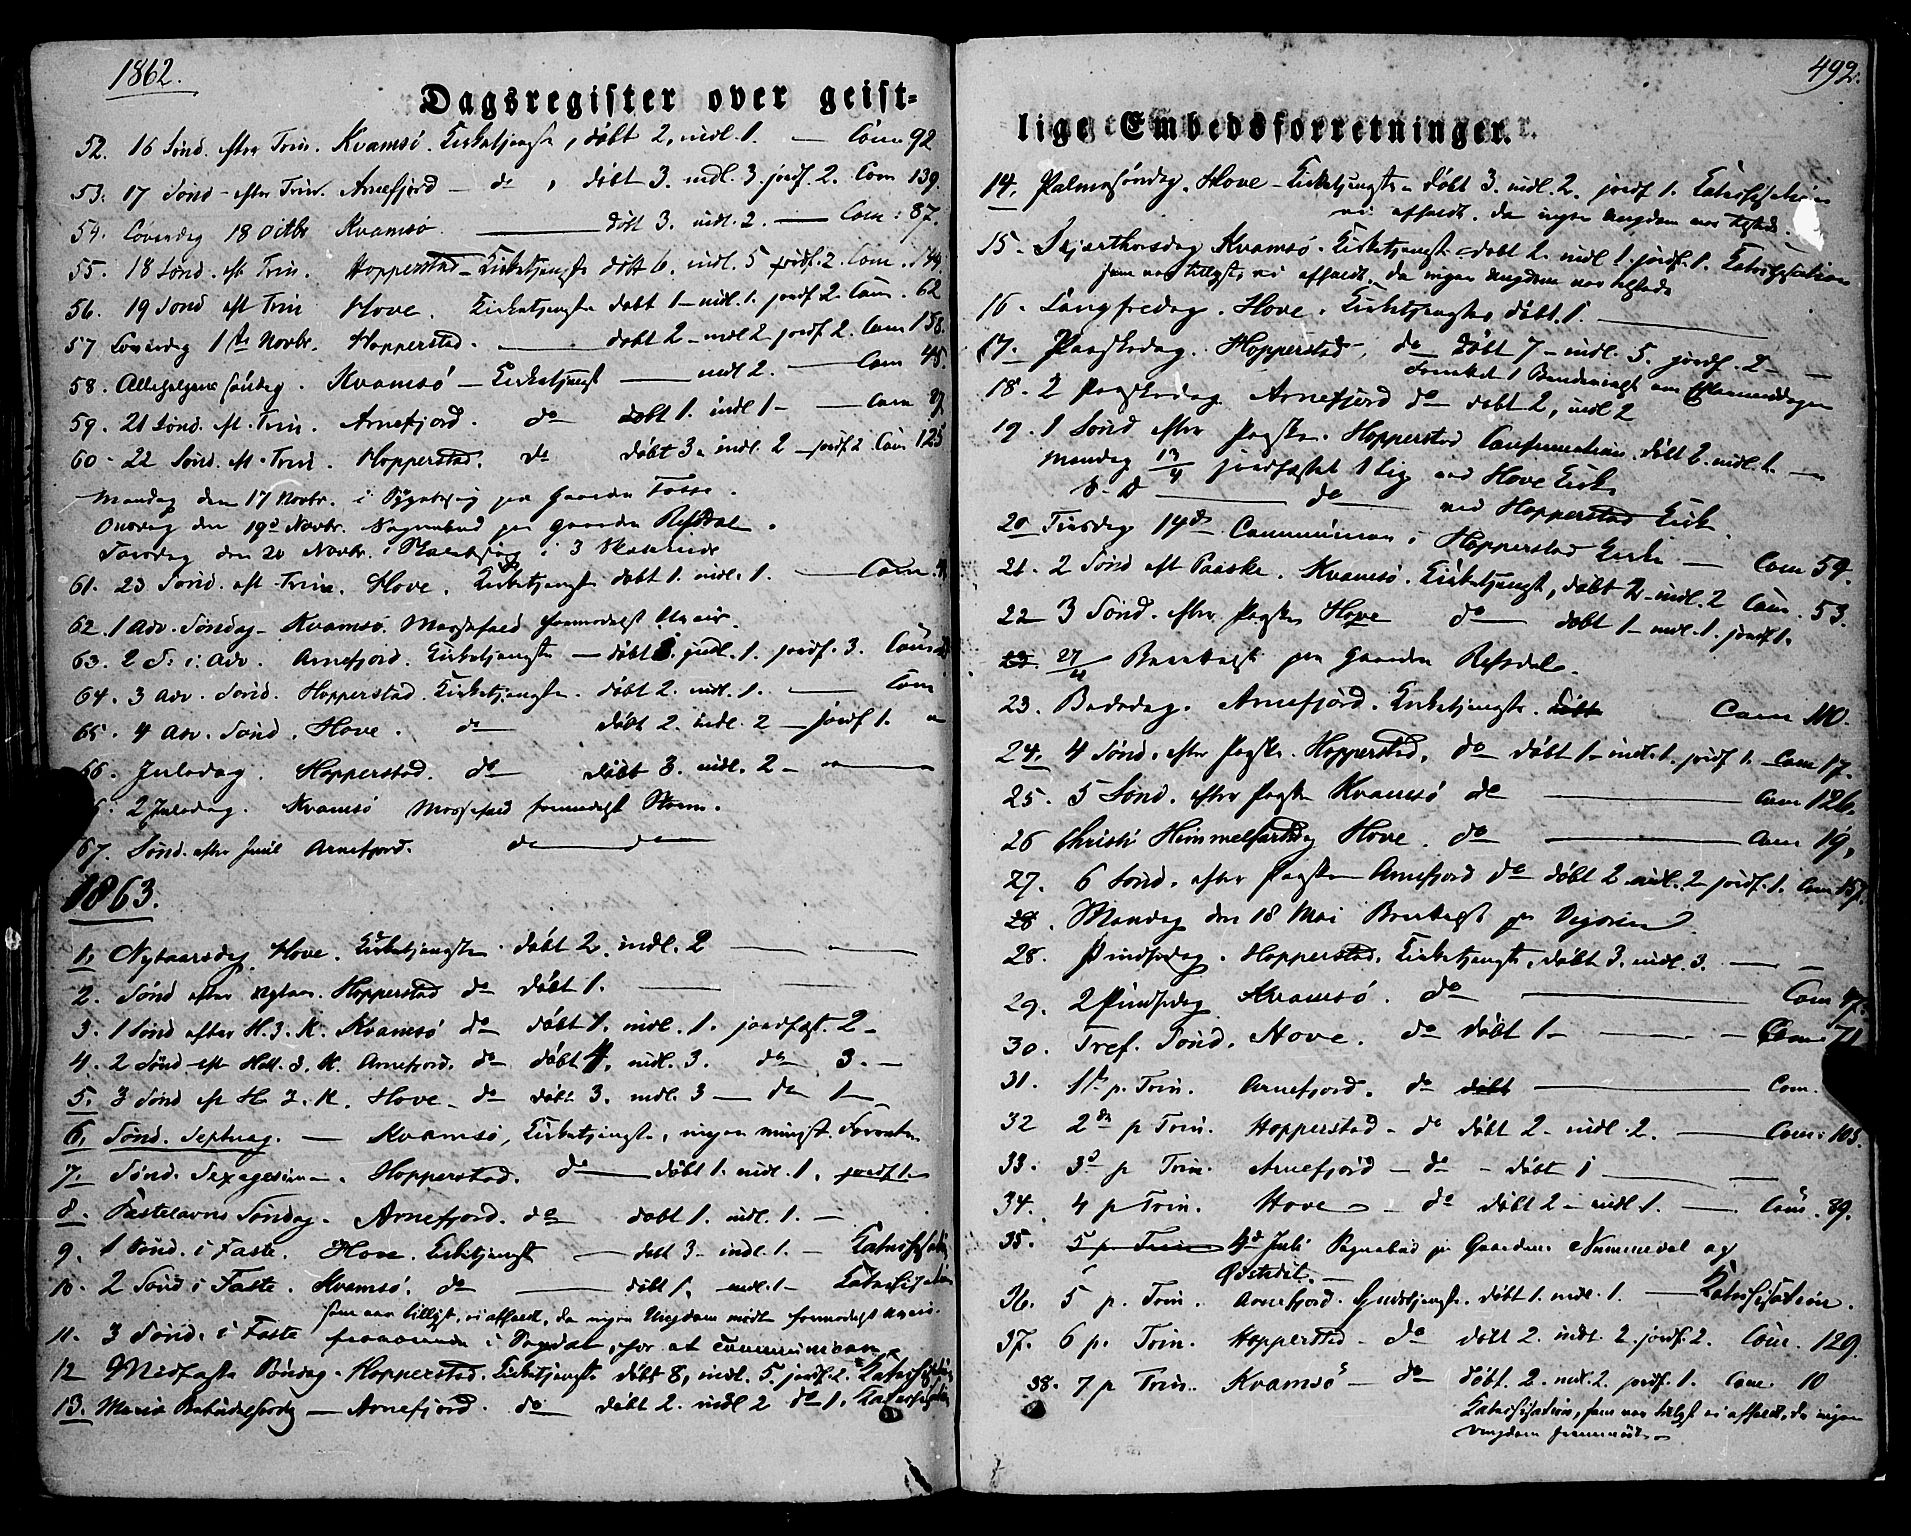 1862.
Dagsregister over geist-
52. 16 Sönd. efter Trin. Kvamsö. Kirketjeneste, döbt 2, indl. 1. — Com 92
53. 17 Sönd. efter Trin. Arnefjord — do, döbt 3. indl. 3. jordf. 2. Com 139.
54. Löverdag 18 Octbr Kvamsö. — döbt 3. indl. 2. — Com: 87.
55. 18 Sönd. eft Trin. Hopperstad — Kirketjeneste döbt 6. indl. 5 jordf. 2. Com. 144.
56. 19 Sönd eft Trin Hove. Kirketjeneste döbt 1 — indl. 1. jordf 2. Com. 62
57 Löverdag 1ste Novbr. Hopperstad. — döbt 2 — indl 2 jordf 2. Com 158.
58. Allehelgens Söndag. Kvamsö — Kirketjenest — indl 2. — Com 45.
59. 21 Sönd. eft. Trin. Arnefjord. do döbt 1. indl 1 — Com
60 — 22 Sönd. eft. Trin. Hopperstad. do döbt 3. indl. 2 — jordf 2 Com 125
Mandag den 17 Novbr. i paa Gaarden Tosse.
Onsdag den 19d Novbr. Sognebud paa Gaarden Refsdal.
Torsdag den 20 Novbr. i i 3
61. 23 Sönd. eft Trin. Hove. Kirketjeneste döbt 1. indl. 1. — Com.
62. 1 Adv. Söndag — Kvamsö. Messefald formedelst Uveir.
63. 2 S. i. Adv. Arnefjord. Kirketjeneste — döbt indl. 1. jordf. 3. Com
64. 3 Adv. Sönd. Hopperstad. Kirketjeneste. döbt 2. indl. 1. — Com
65. 4 Adv. Sönd. Hove. do döbt 2. indl. 2 — jordf 1.
66. Juledag. Hopperstad. do döbt 3. indl. 2 —
2 Juledag. Kvamsö Messefald formedelst Storm.
67. Sönd. efter Juul Arnefjord. do — do
1863.
1, Nytaarsdag Hove. Kirketjeneste. döbt 2. indl. 2 —
2. Sönd efter Nytaar. Hopperstad do döbt 1. —
3. 1 Sönd efter H. 3. K. Kvamsö do döbt 1. indl. 1. jordfæst. 2 —
4. 2 Sönd eft Hell. 3. K. Arnefjord. do döbt 4, indl. 3. do 3. —
5. 3 Sönd eft H 3. K. Hove — do döbt 3. indl. 3 — do 1 —
6, Sönd. Septuag. — Kvamsö, Kirketjeneste, ingen minist. Forretn.
7. Sönd. Sexagesima —. Hopperstad. do — döbt 1. indl. 1. jordf 1 —
8. Fastelavns Söndag. Arnefjord. do döbt 1. indl. 1. —
9. 1 Sönd. i Faste. Hove. Kirketjenest — döbt 3 — indl. 1. — Katechisation
10. 2 Sönd i Faste. Kvamsö. do — döbt 1, indl. 1 — Katechisation
som var tillyst, ei afholdt, da ingen Ungdom mödte formedelst Uveir.
11. 3 Sönd. i Faste i Sogndal, for at communicere
12 Midfaste Söndag. Hopperstad. Kirketjeneste döbt 8, indl. 5. jordf. 2. Katechisation
13. Mariæ Bebudelsesdag — Arnefjord. do döbt 2. indl 2 do 1. Katechisation
492.
lige Embedsforretninger.
14. Palmesöndag. Hove — Kirketjeneste — döbt 3. indl. 2. jordf 1. Katechisation
ei afholdt, da ingen Ungdom var tilstede.
15. Skjærthorsdag Kvamsö. Kirketjenest döbt 2. indl 1. jordf. 1. Katechisation
som var tillyst, ei afholdt, da ingen Ungdom var tilstede
16. Langfredag. Hove. Kirketjeneste, döbt. 1 —
17. Paaskedag. Hopperstad, do döbt 7 — indl. 5. jordf. 2 —
18. 2 Paaskedag Arnefjord do döbt 2, indl 2
19. 1 Sönd efter Paaske. Hopperstad Confirmation. döbt 2. indl. 1. —
Mandag 13/4 jordfæstet 1 Lig ved Hove Kirke
S. D — do — ved Hopperstad Kirke.
20 Tirsdag 14de Communion i Hopperstad Kirke — Com 59.
21. 2 Sönd eft Paaske. Kvamsö. Kirketjeneste, döbt 2 — indl. 2 Com. 53.
22 3 Sönd. efter Paaske Hove do döbt 1 — indl. 1. jordf 1.
23. 27/4 paa Gaarden Refsdal.
23. Bededag. Arnefjord. Kirketjeneste. döbt Com 110.
24. 4 Sönd. efter Paaske. Hopperstad. do döbt 1 — indl. 1. jordf 1. — Com 17.
25. 5 Sönd. efter Paaske Kvamsö do — Com 126.
26 Christi Himmelfartsdag Hove. do — Com 19,
27. 6 Sönd. efter Paaske Arnefjord do döbt 2 indl. 2 jordf. 1. Com 157.
28. Mandag den 18 Mai paa
28. Pindsedag. Hopperstad. Kirketjeneste, döbt 3. indl. 3. —
29. 2 Pindsedag Kvamsö. do — Com 47.
30. Tref. Sönd. Hove. do döbt 1 — Com. 71
31. 1ste p. Trin. Arnefjord. do döbt — Com.
32 2den p Trin. Hopperstad — do döbt 2 — indl. 2. — Com: 103.
33. 3d p Trin. Arnefjord — do — döbt 1 —
34. 4 p Trin. Hove — do döbt 2 — indl. 1. — Com. 89.
35. 5 p. Trin 4d Juli Sognebud paa Gaarden Nummedal og
Ovstedit. —
36. 5 p. Trin. Arnefjord. Gudstjeneste. döbt 1. indl. 1. — Katechisation.
37. 6 p. Trin. Hopperstad — do döbt 2. indl. 2. jordf. 2. Com. 129.
38. 7 p Trin. Kvamsö — do döbt. 2. indl. 2. jordf. 1. Com. 10
Katechisation, som var tillyst ei afholdt, da ingen
Ungdom fremmödte